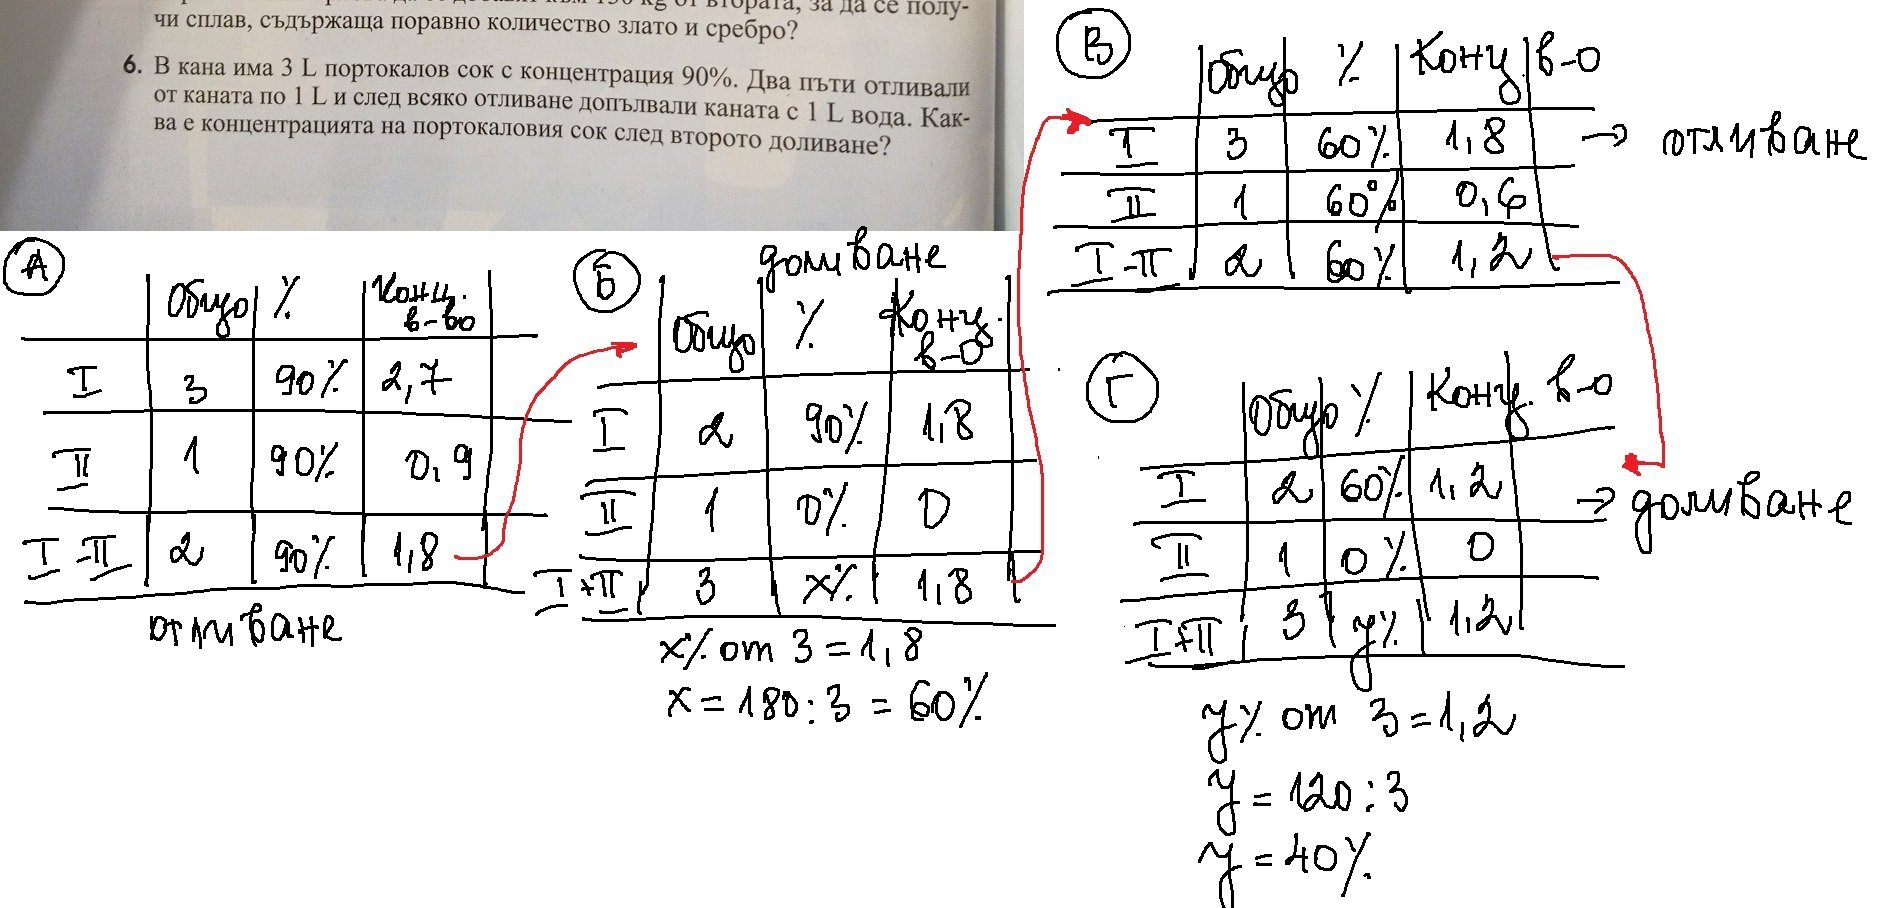 чи сплав, съдържаща поравно количество злато и сребро?
6. В кана има 3 L портокалов сок с концентрация 90%. Два пъти отливали
от каната по 1 L и след всяко отливане допълвали каната с 1 L вода. Как-
ва е концентрацията на портокаловия сок след второто доливане?
А
Общо % Конц. в-во
I 3 90% 2,7
II 1 90% 0,9
I-II 2 90% 1,8
отливане
Б
доливане
Общо % Конц. в-о
I 2 90% 1,8
II 1 0% 0
I+II 3 x% 1,8
x% от 3 = 1,8
x = 180 : 3 = 60%
В
Общо % Конц в-о
I 3 60% 1,8 → отливане
II 1 60% 0,6
I-II 2 60% 1,2
Г
Общо % Конц. в-о
I 2 60% 1,2 → доливане
II 1 0% 0
I+II 3 y% 1,2
y% от 3 = 1,2
y = 120 : 3
y = 40%